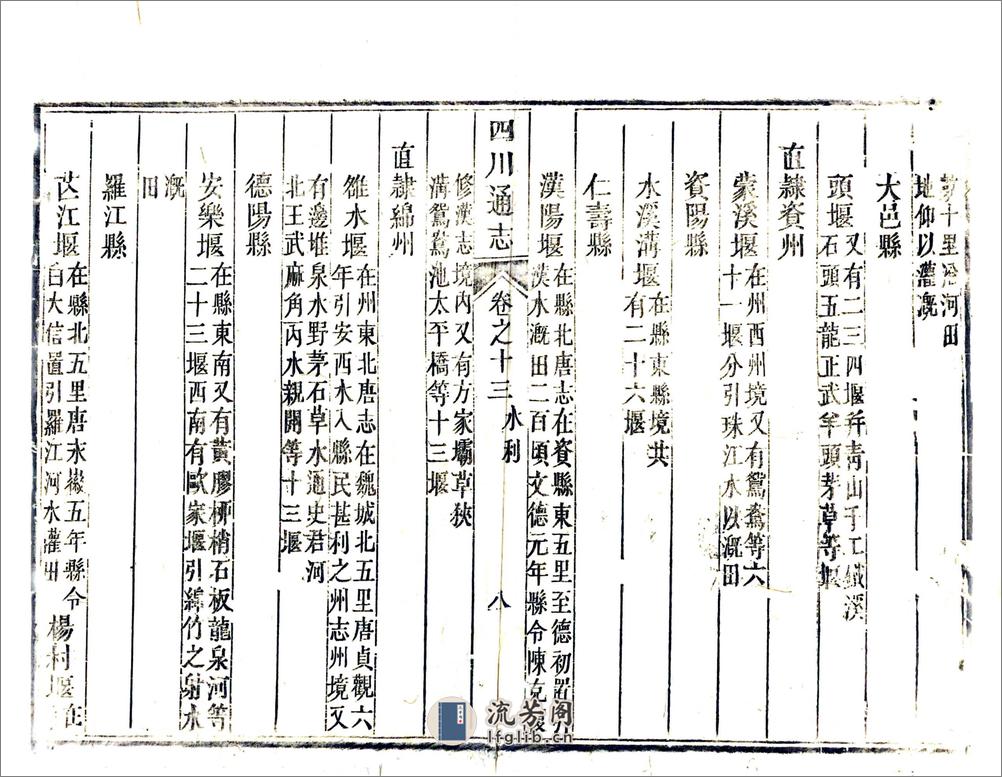 十里㳂河田
地仰以灌溉
大邑縣
頭堰又有二三四堰并青山千工鐵溪
石頭五龍正武牟頭茅草等堰
直隸資州
蒙溪堰在州西州境又有鴛鴦等六
十一堰分引珠江水以溉田
資陽縣
水溪溝堰在縣東縣境共
有二十六堰
仁壽縣
漢陽堰在縣北唐志在資縣東五里至德初置
漢水溉田二百頃文德元年縣令陳
四川通志 卷之十三 水利 八
修漢志境內又有方家壩草狹
溝鴛鴦池太平橋等十三堰
直隸綿州
雒水堰在州東北唐志在魏城北五里唐貞觀六
年引安西水入縣民甚利之州志州境又
有邊堆泉水野茅石草水通史君河
北王武麻角丙水親開等十三堰
德陽縣
安樂堰在縣東南又有黃膠柳梢石板龍泉河等
二十三堰西南有歐家堰引綿竹之射水
溉
田
羅江縣
茫江堰在縣北五里唐永徽五年縣令
白大信置引羅江河水灌田
楊村堰在
流芳阁
lfglib.cn